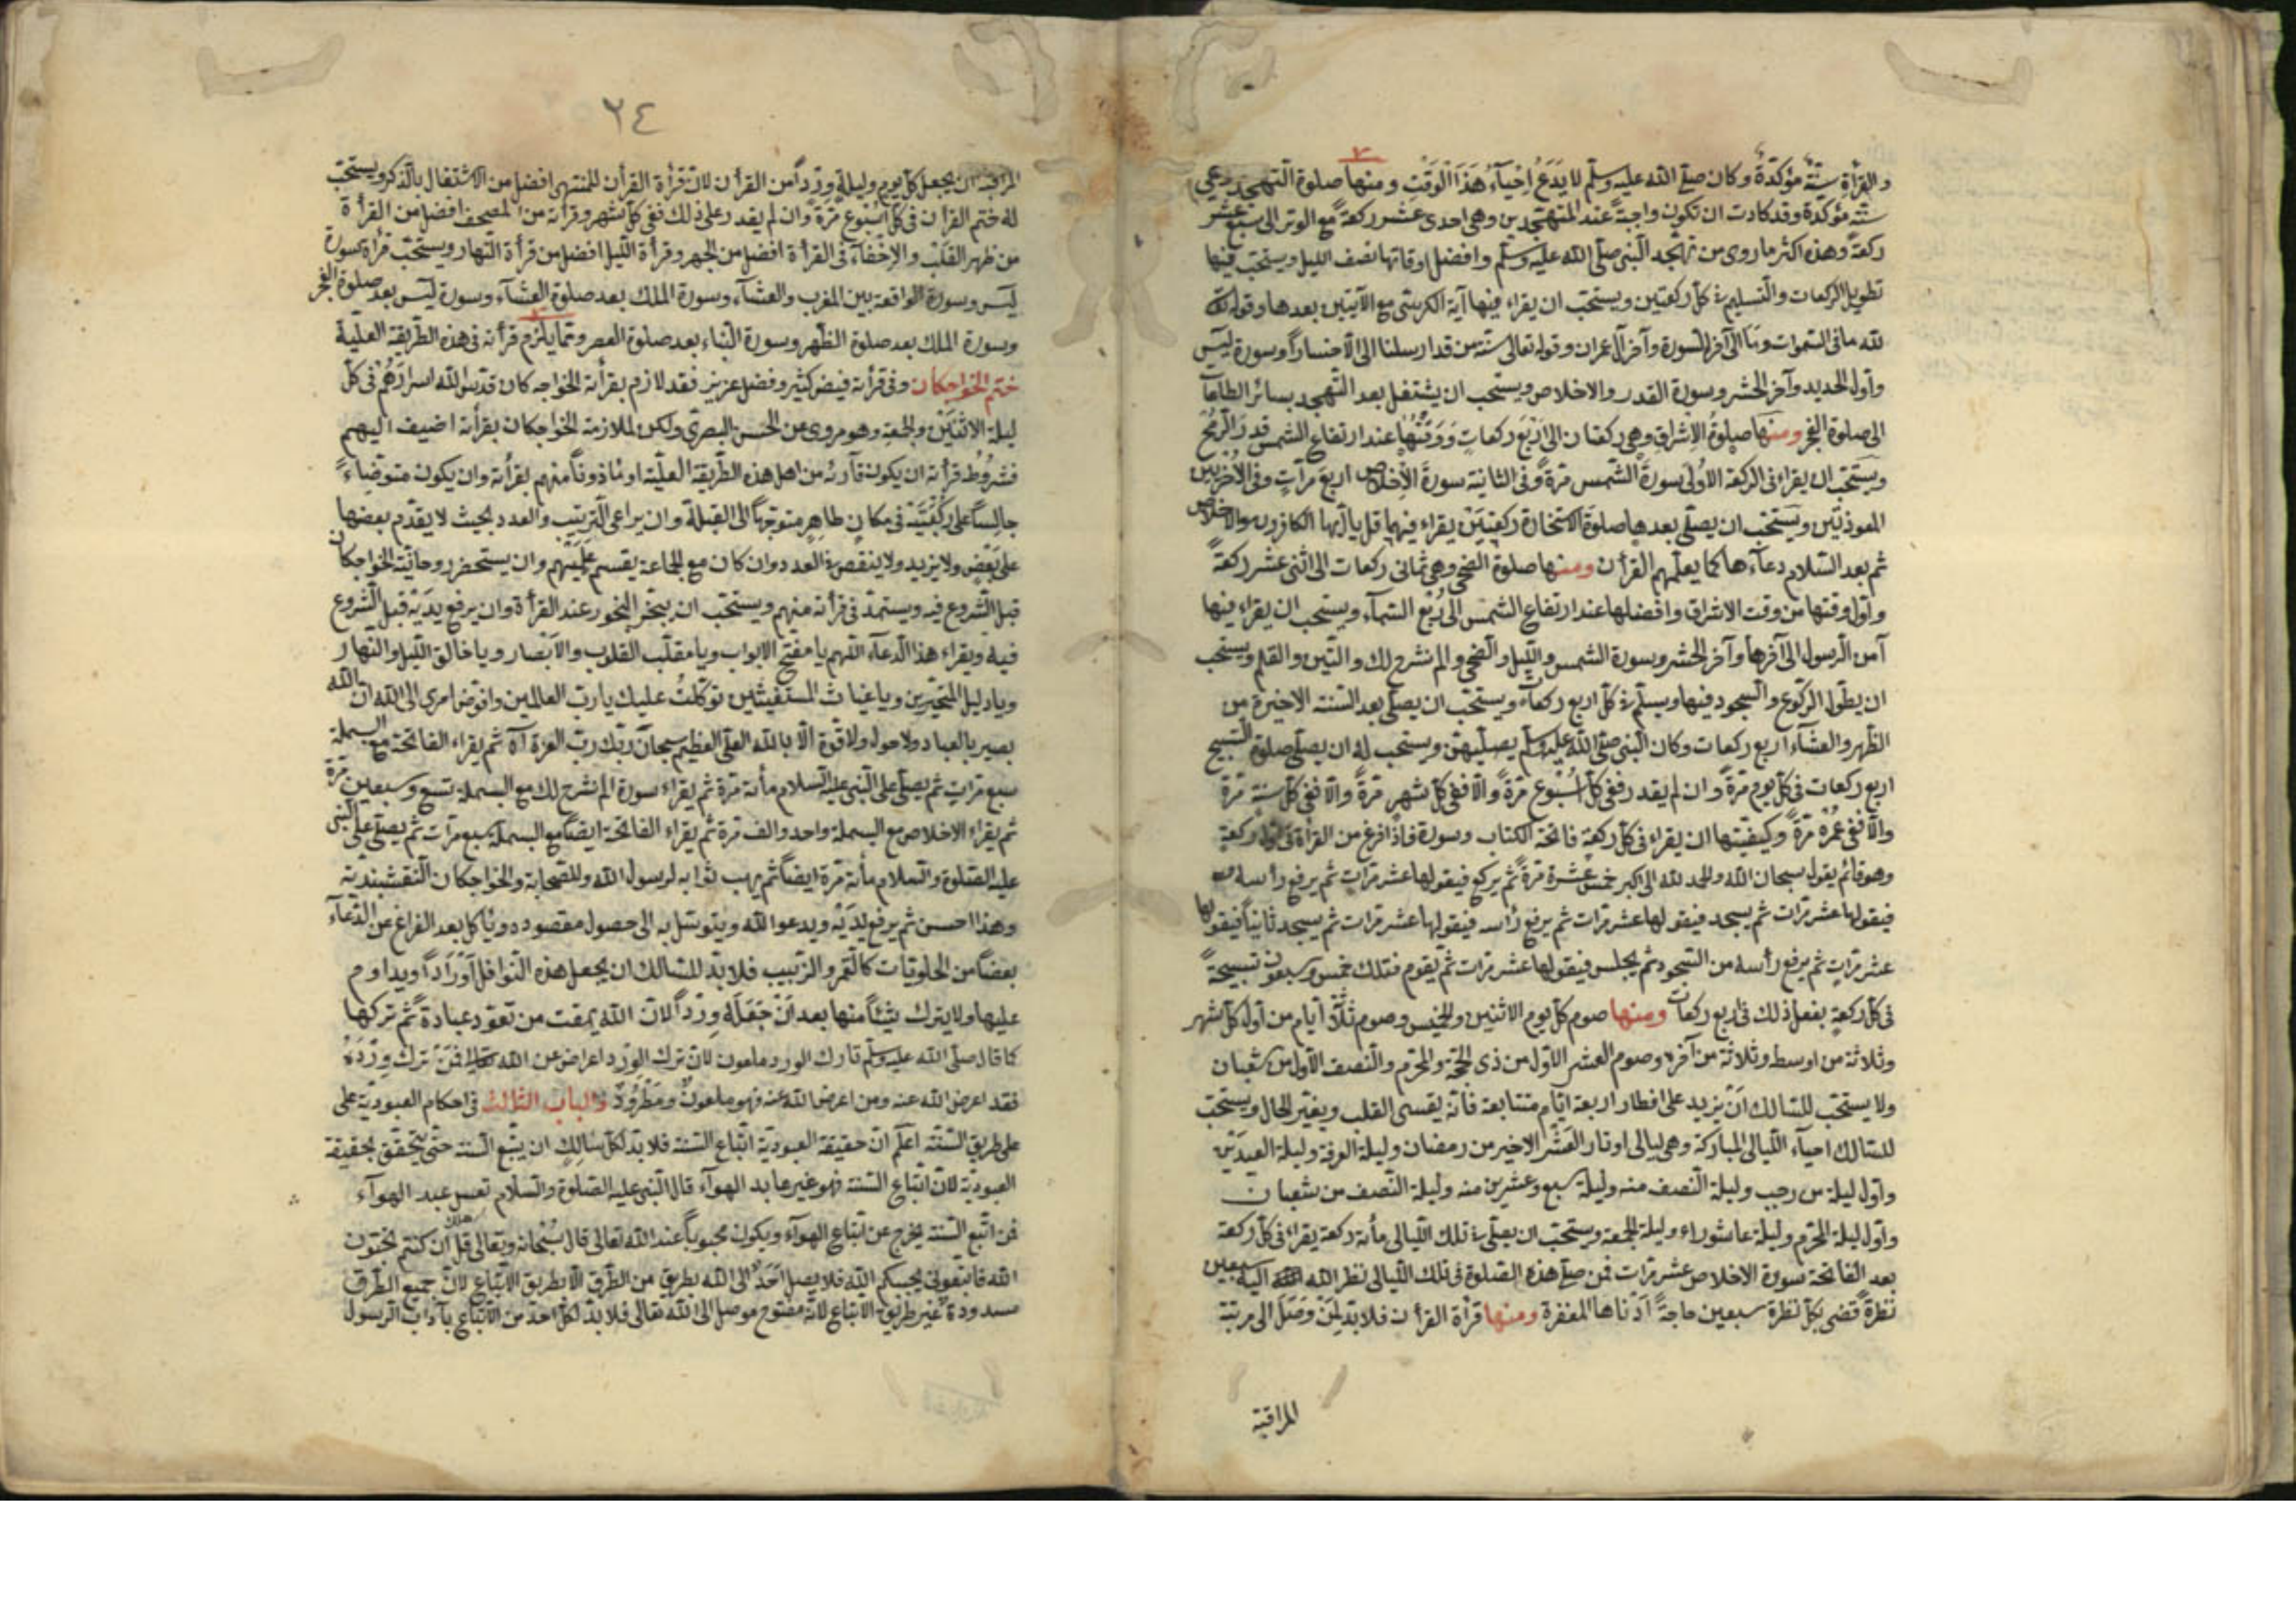 والقرأة سنّة مؤكدة وكان صلّى الله عليه وسلّم لا يَدَعُ اِحْيآءَ هَذَا الْوَقْتِ ومنها صلوة التهجد وهي
سنّة مؤكدة وقد كادت ان تكون واجبة عند المتهجدين وهي احدى عشر ركعة مع الوتر الى سبع عشر
ركعة وهذه اكثر ما روى من تهجد النبي صلى الله عليه وسلّم وافضل اوقاتها نصف الليل ويستحب فيها
تطويل الركعات والتسليم في كل ركعتين ويستحب ان يقراء فيها آية الكرسي مع الآيتين بعدها وقوله تعالى
لله ما في السموات وما الى آخر السورة وآخر آل عمران وقوله تعالى سنة من قد ارسلنا الى الا خسارا وسورة ليس
واول الحديد وآخر الحشر وسورة القدر والاخلاص ويستحب ان يشتغل بعد التهجد بسائر الطاعات
الى صلوة الفجر ومنها صلوةُ الاِشراق وهي ركعتان الى اَرْبَع ركعاتٍ وَوَقْتُهَا عند ارتفاع الشمس قدر الرمح
ويستحب ان يقراء في الركعة الاُولى سورة الشمس مرة وفي الثانية سورة الاخلاص اربع مراتٍ وفي الاخريين
المعوذتين ويستحب ان يصلى بعدها صلوة الاستخارة ركعتين يقراء فيهما قل يا ايها الكافرون والاخلاص
ثم بعد السّلام دعآءها كما يعلّمهم القرأن ومنها صلوة الضحى وهي ثماني ركعات الى اثنى عشر ركعةً
واول وقتها من وقت الاشراق وافضلها عند ارتفاع الشمس الى رُبع السّمآء ويستحب ان يقراء فيها
آمن الرسول الى آخرها وآخر الحشر وسورة الشمس والليل والضحى والم نشرح لك والتين والقلم ويستحب
ان يطول الركوع والسجود فيها ويسلّم في كل اربع ركعات ويستحبّ ان يصلّى بعد السّنة الاخيرة من
الظهر والعشآء اربع ركعات وكان النبي صلى الله عليه وسلم يصليهن ويستحب له ان يصلى صلوة التسبيح
اربع ركعات في كل يوم مرة وان لم يقدر ففي كل اُسْبُوعٍ مرةً والا ففي كل شهر مرةً والا ففي كل سنة مرة
والا ففي عُمْرِهِ مرةً وكيفيتها ان يقراء في كل ركعةٍ فاتحة الكتاب وسورة فاذا فرغ من القرأة في اول ركعةٍ
وهو قائم يقول سبحان الله والحمد لله الى اكبر خمس عشرة مرةً ثم يركع فيقولها عشر مرّاتٍ ثم يرفع رأسه
فيقولها عشر مرات ثم يسجد فيقولها عشر مرات ثم يرفع رأسه فيقولها عشر مرات ثم يسجد ثانيا فيقولها
عشر مراتٍ ثم يرفع رأسه من السّجود ثم يجلس فيقولها عشر مرات ثم يقوم فتلك خمس وسبعون تسبيحةً
في كل ركعةٍ يفعل ذلك في اربع ركعات ومنها صوم كل يوم الاثنين والخميس وصوم ثلاثة ايام من اول كل شهر
وثلاثة من اوسطه وثلاثة من آخره وصوم العشر الاول من ذي الحجة والمحرّم والنصف الاول من شعبان
ولا يستحب للسّالك اَنْ يزيد على افطار اربعة ايّام متتابعة فانّه يقسى القلب ويغيّر الحال ويستحب
للسّالك احيآء الليالى المباركة وهي ليالى اوتار العَشْر الاخير من رمضان وليلة العرفة وليلة العيدَيْن
واول ليلة من رجب وليلة النصف منه وليلة سبع وعشرين منه وليلة النّصف من شعبان
واول ليلة المحرّم وليلة عاشوراء وليلة الجمعة ويستحبّ ان يصلّى في تلك الليالى مأة ركعة يقراء في كل ركعة
بعد الفاتحة سورة الاخلاص عشر مرات فمن صلّى هذه الصّلوة في تلك الليالى نظر الله اليه سبعين
نظرةً قضى بكل نظرة سبعين حاجةً اَدْناها المغفرة ومنها قرأة القرأن فلا بدّ لِمَنْ وَصَلَ الى مرتبة
المراقبة
٢٤
المراقبة ان يجعل كل يوم وليلة وِرْداً من القرأن لانّ قرأة القرأن للمنتهى افضل من الاشتغال بالذكر ويستحبّ
له ختم القرأن في كل اُسْبُوع مَرّة وان لم يقدر على ذلك ففي كل شهر وقرأته من المصحف افضل من القرأة
من ظهر القَلْب والاِخْفآء في القرأة افضل من الجهر وقرأة الليل افضل من قرأة النّهار ويستحبّ قرأة سورة
ليس وسورة الواقعة بين المغرب والعشآء وسورة الملك بعد صلوة العشآء وسورة ليس بعد صلوة الفجر
وسورة الملك بعد صلوة الظّهر وسورة النّباء بعد صلوة العصر وممّا يلزم قرأته في هذه الطريقة العليّة
ختم الخواجكان وفي قرأته فيض كثير وفضل عزيز فقد لازم بقرأته الخواجه كان قدّس الله اسرارَهُمْ في كل
ليلة الاثنَيْن والجمعة وهو مروى عن الحسن البصرى ولكن لملازمة الخواجكان بقرأته اضيف اليهم
فشروطُ قرأته ان يكون قارئه من اهل هذه الطّريقة العليّة او مأذونًا منهم بقرأته وان يكون متوضّاءً
جالساً على ركبَتَيْه في مكانٍ طاهرٍ متوجّهاً الى القبلة وان يراعى التّرتيب والعدد بحيث لا يقدّم بعضها
على بَعْضٍ ولا يزيد ولا ينقص في العدد وان كان مع الجماعة يقسم عليهم وان يستحضر روحانيّة الخواجكان
قبل الشّروع فيه ويستمدّ في قرأته منهم ويستحبّ ان يبخّر البخور عند القرأة وان يرفع يدَيْه قبل الشّروع
فيه ويقراء هذا الدعآء اللهم يا مفتّح الابواب ويا مقلّب القلوب والاَبْصار ويا خالق الليل والنهار
ويا دليل المتحيّرين ويا غياث المستغيثين توكّلتُ عليك يا ربّ العالمين وافوّض امرى الى الله ان الله
بصير بالعباد ولا حول ولا قوة الا بالله العلىّ العظيم سبحان ربّك ربّ العزة آه ثم يقراء الفاتحة مع البسملة
سبع مراتٍ ثم يصلّى على النّبى عليه السّلام مأة مرّة ثم يقراء سورة الم نشرح لك مع البسملة تسع وسبعين مرة
ثم يقراء الاخلاص مع البسملة واحد والف مرّة ثم يقراء الفاتحة ايضًا مع البسملة سبع مرات ثم يصلّى على النّبى
عليه الصّلوة والسلام مأة مرّة ايضًا ثم يهب ثوابه لرسول الله وللصّحابة والخواجكان النّقشبنديّة
وهذا احسن ثم يرفع يدَيْه ويدعو الله ويتوسّل به الى حصول مقصوده ويأكل بعد الفراغ عن الدّعآء
بعضًا من الحلويّات كالتّمر والزّبيب فلا بدّ للسّالك ان يجعل هذه النّوافل اَوْرَاداً ويداوم
عليها ولا يترك شيئًا منها بعد اَنْ جَعَلَهُ وِرْداً لانّ الله يمقت من تعوّد عبادةً ثم تركها
كما قال صلّى الله عليه وسلّم تارك الورد ملعون لانّ ترك الوِرْد اعراض عن الله تعالى فَمَنْ ترك وِرْدَهُ
فقد اعرض الله عنه ومن اعرض الله عنه فهو ملعونٌ ومَطْرُودٌ والباب الثالث في احكام العبوديّة على
على طريق السّنّة اعلم انّ حقيقة العبوديّة اتّباع السّنة فلا بدّ لكلّ سالكٍ ان يتّبع السّنة حتّى يتحقّق بحقيقة
العبوديّة لانّ اتّباع السّنة فهو غير عابد الهوآء قال النّبى عليه الصّلوة والسلام تعس عبد الهوآء
فمن اتّبع السّنة يخرج عن اتّباع الهوآء ويكون محبوباً عند الله تعالى قال سُبْحانه وتعالى قل ان كنتم تحبّون
الله فاتّبعونى يحببكم الله فلا يصل اَحَدٌ الى الله بطريق من الطّرق الّا بطريق الاتّباع لانّ جميع الطّرق
مسدودة غير طريق الاتباع لانّه مفتوح موصل الى الله تعالى فلا بدّ لكل احد من الاتّباع بآداب الرسول